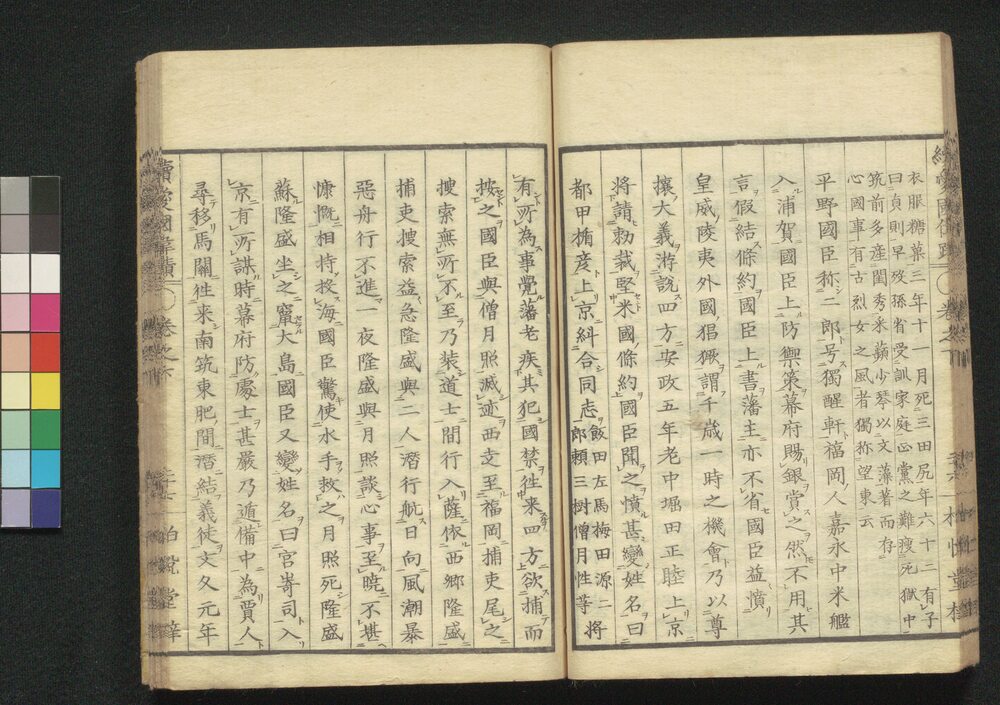 衣服糖菓三年十一月死三田尻年六十二有子
曰貞則早歿孫省受訓家庭正黨之難瘦死獄中
筑前多産閨秀釆蘋少琴以文藻著而存
心國事有古烈女之風者獨称望東云
平野國臣称二郎号獨醒軒福岡人嘉永中米艦
入浦賀國臣上防禦策幕府賜銀賞之然不用其
言假結條約國臣上書藩主亦不省國臣益憤
皇威陵夷外國猖獗謂千歳一時之機會乃以尊
攘大義游説四方安政五年老中堀田正睦上京
将請勅裁堅米國條約國臣聞之憤甚變姓名曰
都甲楯彦上京糾合同志飯田左馬梅田源二郎頼三樹僧月性等将
有所為事覺藩老疾其犯國禁徃来四方欲捕而
按之國臣與僧月照滅迹西走至福岡捕吏尾之
搜索無所不至乃装道士間行入薩依西郷隆盛
捕吏搜索益急隆盛與二人潜行航日向風潮暴
惡舟行不進一夜隆盛與月照談心事至曉不堪
慷慨相持投海國臣驚使水手救之月照死隆盛
蘇隆盛坐之竄大島國臣又變姓名曰宮嵜司入
京有所謀時幕府防處士甚嚴乃遁備中為賈人
尋移馬關徃来南筑東肥間潜結義徒文久元年